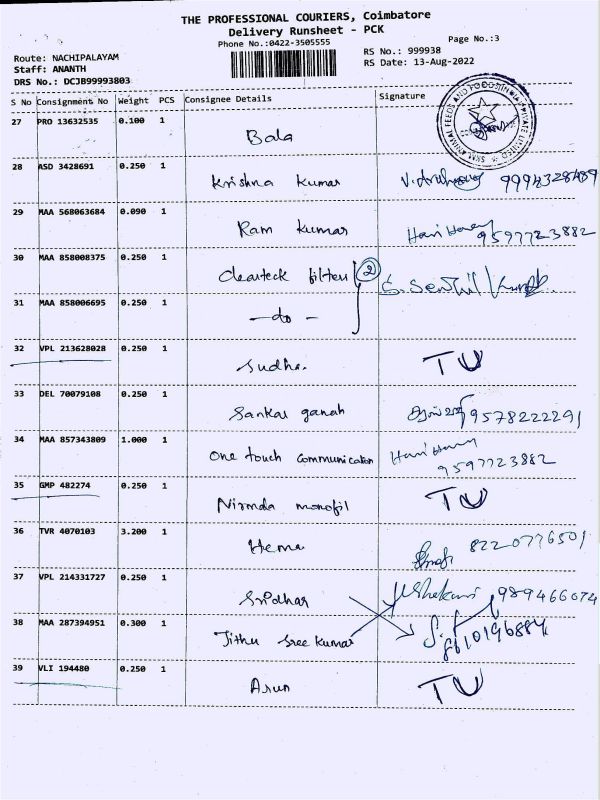 THE PROFESSIONAL COURIERS, Coimbatore
Delivery Runsheet - PCK
Phone No.:0422-3505555
Page No.:3
Route: NACHIPALAYAM
RS No.: 999938
Staff: ANANTH
RS Date: 13-Aug-2022
DRS No.: DCJB99993803
S No Consignment No Weight PCS Consignee Details Signature
27 PRO 13632535 0.100 1 Bala
28 ASD 3428691 0.250 1 Krishna Kumar
29 MAA 568063684 0.090 1 Ram Kumar Hari Haran 9597723882
30 MAA 858008375 0.250 1 Clearteck filters 2 S. Senthil Kumar
31 MAA 858006695 0.250 1 - do -
32 VPL 213628028 0.250 1 Sudha. TU
33 DEL 70079108 0.250 1 Sankar ganah 9578222291
34 MAA 857343809 1.000 1 One touch communication Hari Haran 9597723882
35 GMP 482274 0.250 1 Nirmala monofil TU
36 TVR 4070103 3.200 1 Hema 8220776501
37 VPL 214331727 0.250 1 Sridhar 9894666074
38 MAA 287394951 0.300 1 Jithu Sree Kumar 8610196884
39 VLI 194480 0.250 1 Arun TU